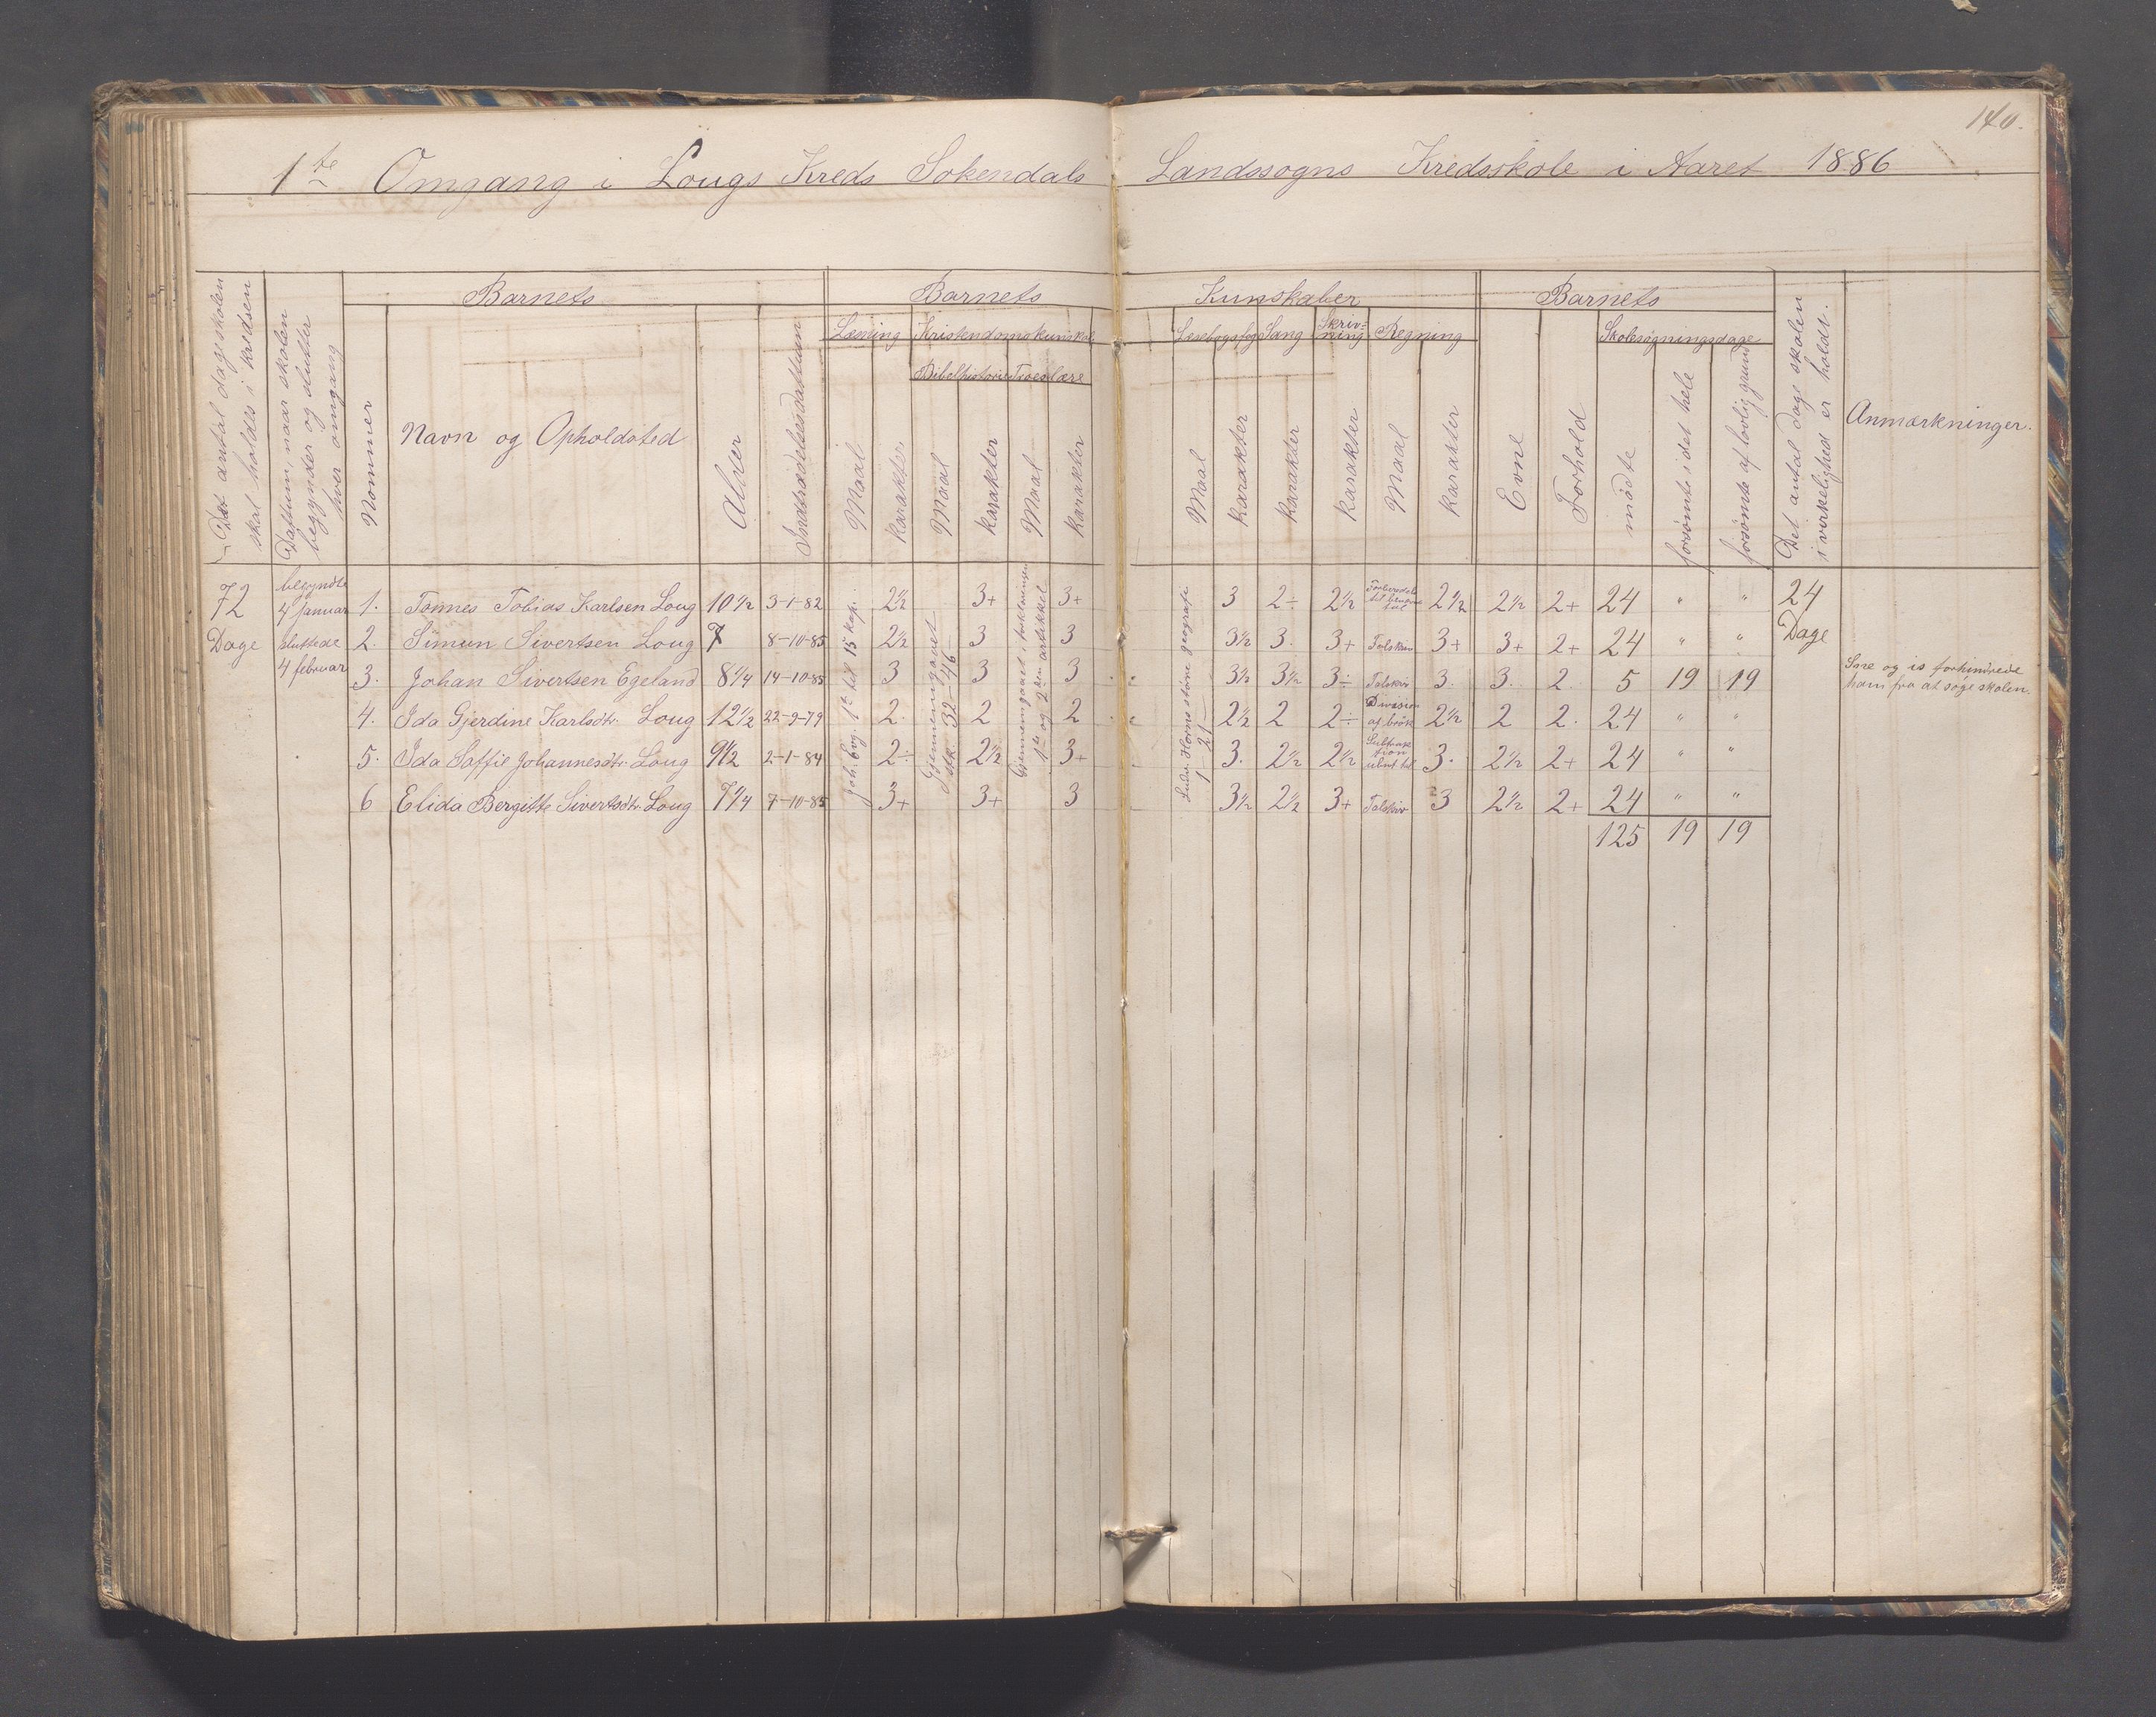 140.
1te Omgang i Lougs Kreds Sokendals Landssogns Kredsskole i Aaret 1886
Det antal dage skolen skal holdes i kredsen
Dattum, naar skolen begynder og slutter hver omgang
Nommer
Barnets
Navn og Opholdsted
Alder
Indtrædelsesdattum
Barnets Kunskaber
Læsning
Maal
karakter
Kristendomskunskab
Bibelhistorie
Maal
karakter
Troeslære
Maal
karakter
Læsebogsfag
Maal
karakter
Sang
karakter
Skriv-
ning
karakter
Regning
Maal
karakter
Barnets
Evne
Forhold
Skolesøgningsdage
mødte
forsømte i det hele
forsømte af lovlig grund
Det antal dage skolen i virkelighed er holdt.
Anmærkninger.
72 Dage
begyndte 4 januar sluttede 4 februar
Joh. Evg. 1te til 15 kap.
Gjennemgaaet stk. 32-46
Gjennemgaaet i forklaringen 1te og 2den artikkel
Ludv. Horns større geografi 1-21
1. Tønnes Tobias Karlsen Loug 10 1/2 3-1-82 2½ 3+ 3+ 3 2÷ 2½ 2½ 2½ 2+ 24 " " 24 Dage
2. Simun Sivertsen Loug 7 8-10-85 2½ 3 3 3½ 3. 3+ Talskriv 3+ 3+ 2+ 24 " "
3. Johan Sivertsen Egeland 8 1/4 14-10-85 3 3 3 3½ 3½ 3÷ Talskriv 3. 3. 2. 5 19 19 Sne og is forhindrede ham fra at søge skolen.
4. Ida Gjerdine Karlsdtr. Loug 12 1/2 22-9-79 2. 2 2 2½ 2 2÷ Division af brøk 2½ 2 2. 24 " "
5. Ida Saffie Johannesdtr. Loug 9 1/2 2-1-84 2÷ 2½ 3+ 3. 2½ 2½ Subtraktion 3. 2½ 2+ 24 " "
6 Elida Bergitte Sivertsdtr. Loug 7 1/4 7-10-85 3+ 3+ 3 3½ 2½ 3+ Talskriv 3 2½ 2+ 24 " "
125 19 19